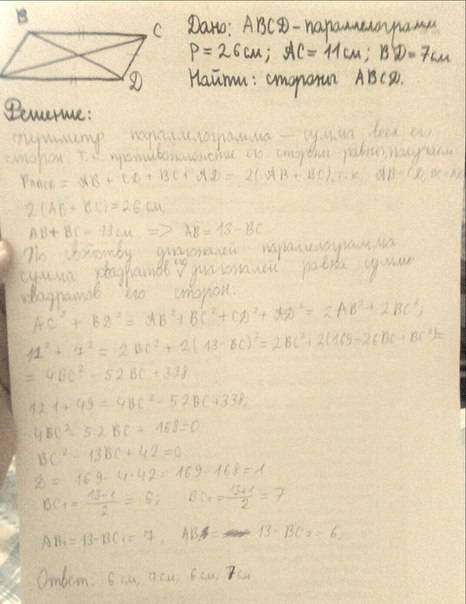 B
C
D
Дано: ABCD - параллелограмм
P = 26 см; AC = 11 см; BD = 7 см
Найти: стороны ABCD.
Решение:
периметр параллелограмма — сумма всех его
сторон. т.к. противоположные его стороны равны, получаем
= AB + CD + BC + AD = 2(AB + BC), т.к. AB=CD,
2(AB + BC) = 26 см,
AB + BC = 13 см => AB = 13 - BC
По свойству диагоналей параллелограмма
сумма квадратов его диагоналей равна сумме
квадратов его сторон:
AC² + BD² = AB² + BC² + CD² + AD² = 2AB² + 2BC²,
11² + 7² = 2BC² + 2(13 - BC)² = 2BC² + 2(169 - 26BC + BC²) =
= 4BC² - 52BC + 338
121 + 49 = 4BC² - 52BC + 338,
4BC² - 52BC + 168 = 0
BC² - 13BC + 42 = 0
D = 169 - 4·42 = 169 - 168 = 1
BC₁ = (13-1)/2 = 6; BC₂ = (13+1)/2 = 7
AB₁ = 13 - BC₁ = 7, AB₂ = 13 - BC₂ = 6,
Ответ: 6 см, 7 см, 6 см, 7 см